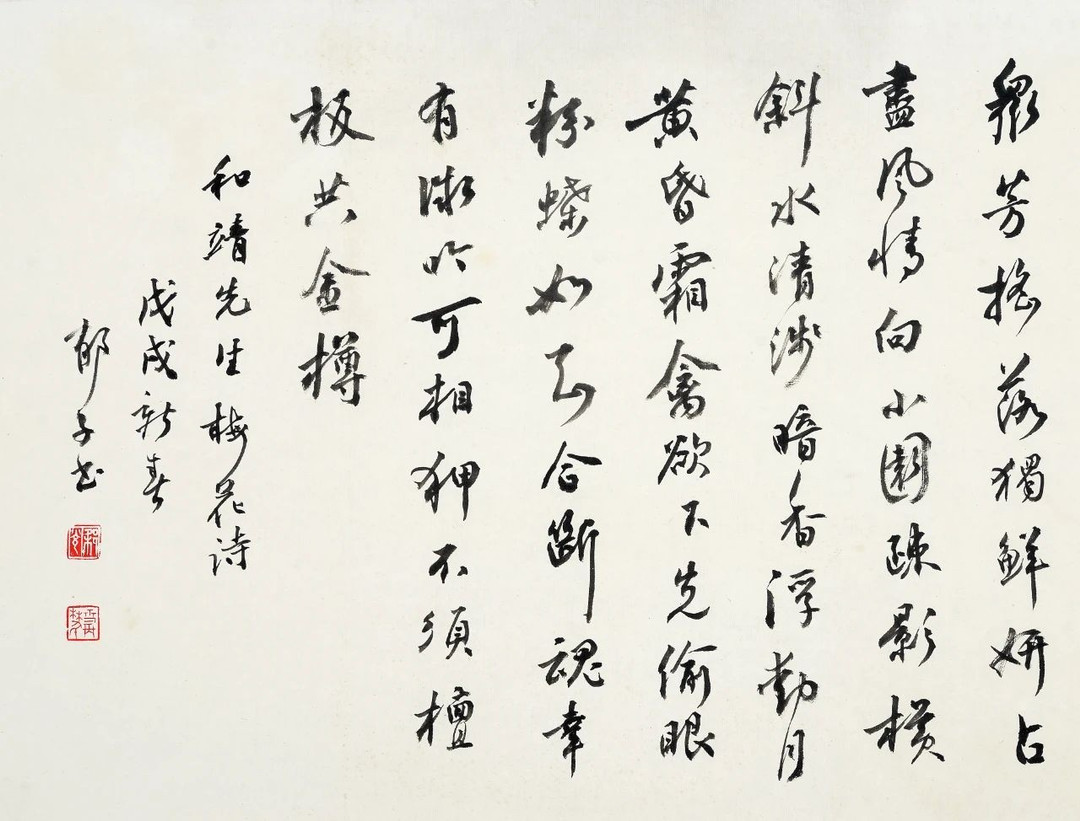 眾芳摇落獨鮮妍占
盡風情向小園疎影橫
斜水清淺暗香浮動月
黃昏霜禽欲下先偷眼
粉蝶如知合斷魂幸
有微吟可相狎不須檀
板共金樽
和靖先生梅花詩
戊戌新春
郁子書